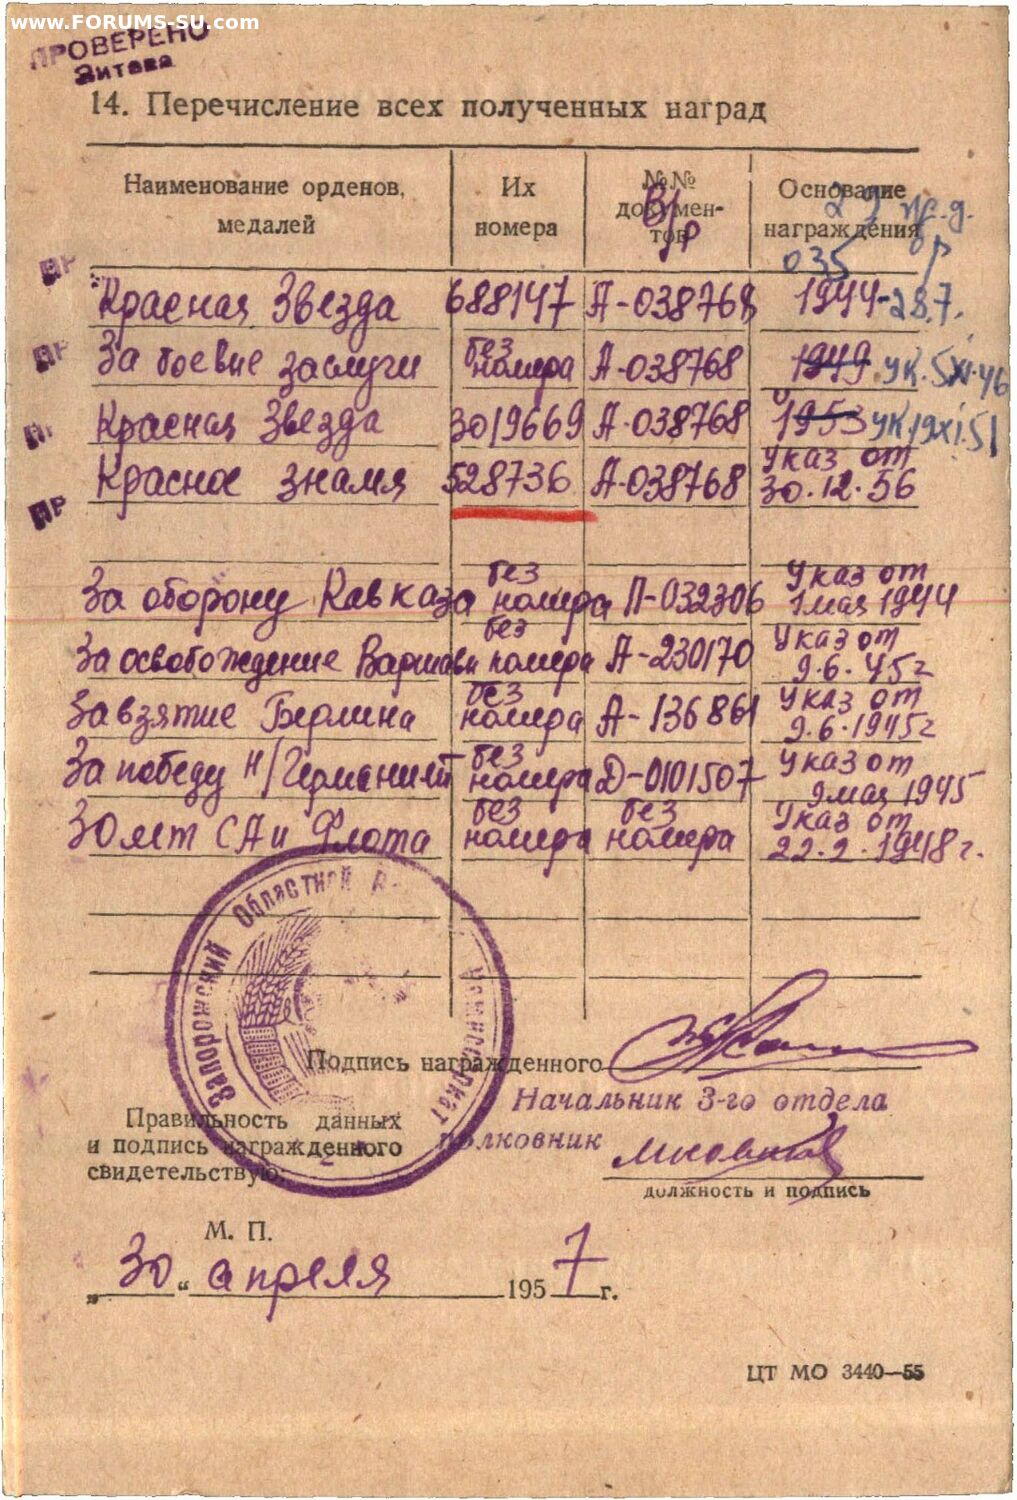 www.FORUMS-SU.com
ПРОВЕРЕНО
14. Перечисление всех полученных наград
Наименование орденов, медалей
Их номера
№№ документов
Основание награждения
В/р
29 пр.д.
035
ПР Красная Звезда 688147 А-038768 1944-28.7.
ПР За боевие заслуги без номера А-038768 1949 УК. 5 XI.46
ПР Красная Звезда 3019669 А-038768 1953 УК 19 XI.51
ПР Красное знамя 528736 А-038768 Указ от 30.12.56
За оборону Кавказа без номера П-032306 Указ от 1 мая 1944
За освобождение Варшави без номера А-230170 Указ от 9.6.45г
За взятие Берлина без номера А-136861 Указ от 9.6.1945г
За победу н/Германией без номера Д-0101507 Указ от 9 мая 1945
30 лет СА и Флота без номера без номера Указ от 22.2.1948г.
Запорожский Областной
Подпись награжденного
Начальник 3-го отдела
полковник
Правильность данных
и подпись награжденного
свидетельствую:
должность и подпись
М. П.
„30“ апреля 1957 г.
ЦТ МО 3440—55